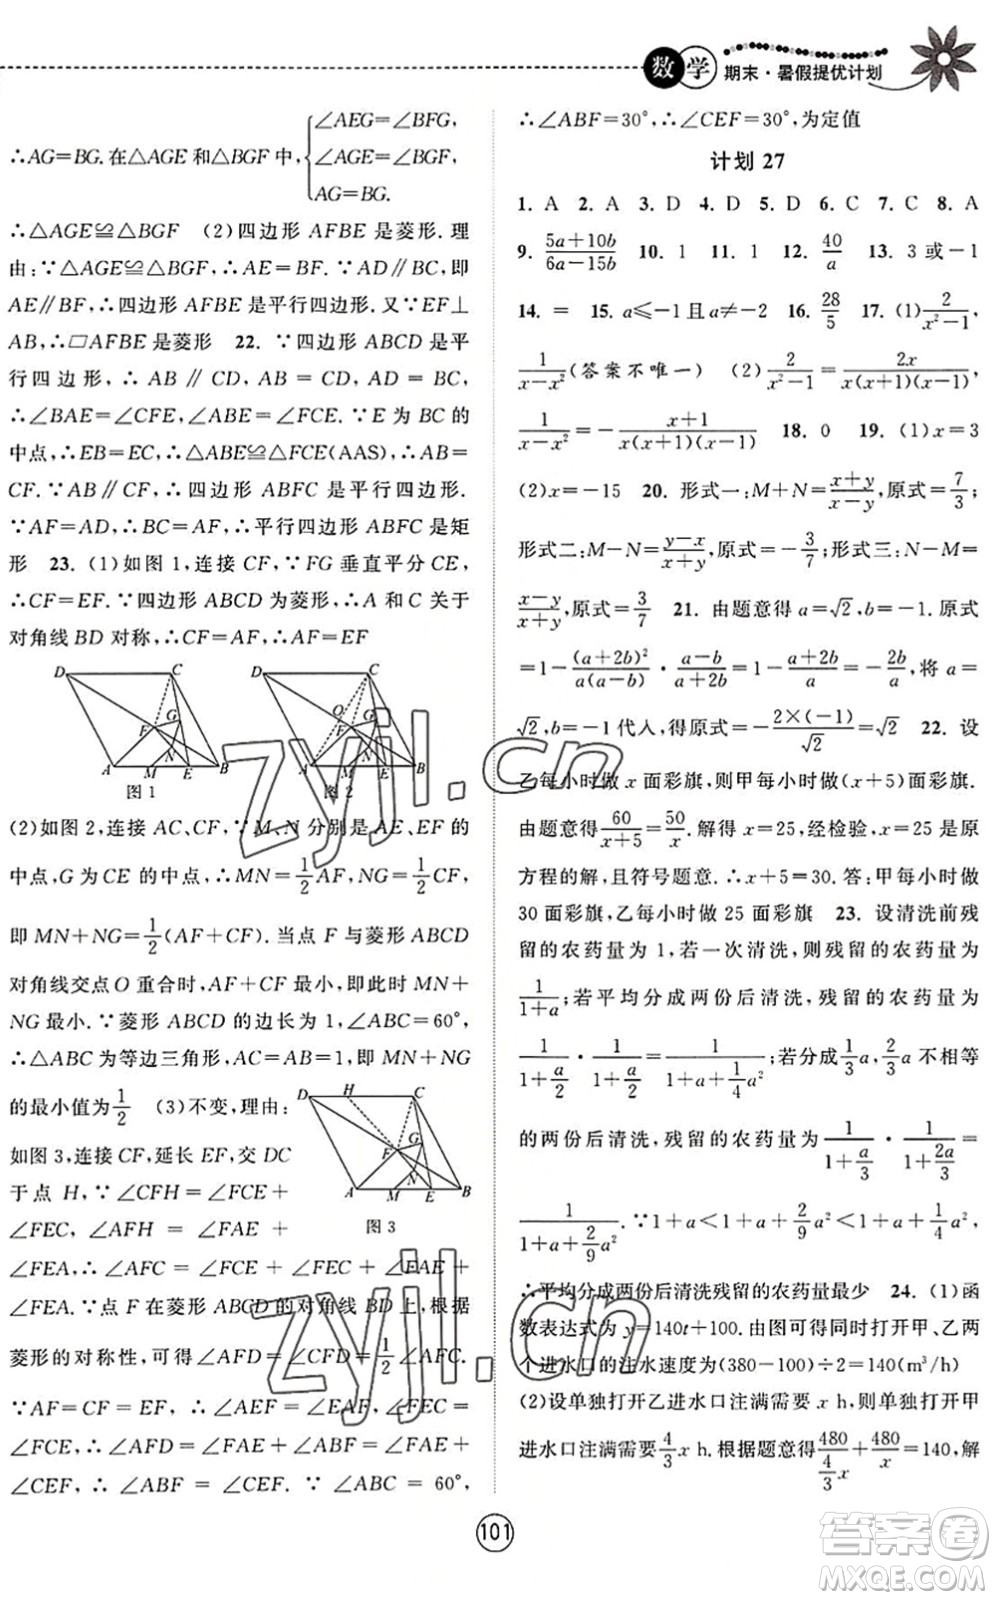 数学 期末·暑假提优计划
∴AG=BG.在△AGE和△BGF中,{∠AEG=∠BFG,
∠AGE=∠BGF,
AG=BG.
∴△AGE≌△BGF (2)四边形 AFBE 是菱形.理
由:∵△AGE≌△BGF,∴AE=BF.∵AD∥BC,即
AE∥BF,∴四边形 AFBE 是平行四边形.又∵EF⊥
AB,∴▱AFBE 是菱形 22. ∵四边形 ABCD 是平
行四边形,∴AB∥CD,AB=CD,AD=BC,
∴∠BAE=∠CFE,∠ABE=∠FCE.∵E 为 BC 的
中点,∴EB=EC,∴△ABE≌△FCE(AAS),∴AB=
CF.∵AB∥CF,∴四边形 ABFC 是平行四边形.
∵AF=AD,∴BC=AF,∴平行四边形 ABFC 是矩
形 23. (1)如图 1,连接 CF,∵FG 垂直平分 CE,
∴CF=EF.∵四边形 ABCD 为菱形,∴A 和 C 关于
对角线 BD 对称,∴CF=AF,∴AF=EF
D C G F A M N E B
图 1
D C O G F A M N E B
图 2
(2)如图 2,连接 AC,CF,∵M,N 分别是 AE,EF 的
中点,G 为 CE 的中点,∴MN=1/2AF,NG=1/2CF,
即 MN+NG=1/2(AF+CF).当点 F 与菱形 ABCD
对角线交点 O 重合时,AF+CF 最小,即此时 MN+
NG 最小.∵菱形 ABCD 的边长为 1,∠ABC=60°,
∴△ABC 为等边三角形,AC=AB=1,即 MN+NG
的最小值为1/2 (3)不变,理由:
如图 3,连接 CF,延长 EF,交 DC
于点 H,∵∠CFH=∠FCE+
∠FEC,∠AFH=∠FAE+
D H C G F A M N E B
图 3
∠FEA,∴∠AFC=∠FCE+∠FEC+∠FAE+
∠FEA.∵点 F 在菱形 ABCD 的对角线 BD 上,根据
菱形的对称性,可得∠AFD=∠CFD=1/2∠AFC.
∵AF=CF=EF,∴∠AEF=∠EAF,∠FEC=
∠FCE,∴∠AFD=∠FAE+∠ABF=∠FAE+
∠CEF,∴∠ABF=∠CEF.∵∠ABC=60°,
∴∠ABF=30°,∴∠CEF=30°,为定值
计划 27
1. A 2. A 3. D 4. D 5. D 6. C 7. C 8. A
9. (5a+10b)/(6a-15b) 10. 1 11. 1 12. 40/a 13. 3 或-1
14. = 15. a≤-1且a≠-2 16. 28/5 17. (1)2/(x²-1),
1/(x-x²)(答案不唯一) (2)2/(x²-1)=2x/(x(x+1)(x-1)),
1/(x-x²)=-(x+1)/(x(x+1)(x-1)) 18. 0 19. (1)x=3
(2)x=-15 20. 形式一:M+N=(x+y)/(x-y),原式=7/3;
形式二:M-N=(y-x)/(x+y),原式=-3/7;形式三:N-M=
(x-y)/(x+y),原式=3/7 21. 由题意得 a=√2,b=-1.原式
=1-(a+2b)²/(a(a-b))·(a-b)/(a+2b)=1-(a+2b)/a=-2b/a,将 a=
√2,b=-1代人,得原式=-(2×(-1))/√2=√2 22. 设
乙每小时做 x 面彩旗,则甲每小时做(x+5)面彩旗.
由题意得60/(x+5)=50/x.解得 x=25,经检验,x=25 是原
方程的解,且符号题意.∴x+5=30.答:甲每小时做
30 面彩旗,乙每小时做 25 面彩旗 23. 设清洗前残
留的农药量为 1,若一次清洗,则残留的农药量为
1/(1+a);若平均分成两份后清洗,残留的农药量为
1/(1+a/2)·1/(1+a/2)=1/(1+a+1/4a²);若分成1/3a,2/3a 不相等
的两份后清洗,残留的农药量为1/(1+a/3)·1/(1+2a/3)=
1/(1+a+2/9a²).∵1+a<1+a+2/9a²<1+a+1/4a²,
∴平均分成两份后清洗残留的农药量最少 24. (1)函
数表达式为 y=140t+100.由图可得同时打开甲、乙两
个进水口的注水速度为(380-100)÷2=140(m³/h)
(2)设单独打开乙进水口注满需要 x h,则单独打开甲
进水口注满需要4/3x h.根据题意得480/(4/3x)+480/x=140,解
101
zyjl.cn
zyjl.cn
答案圈
MXQE.COM